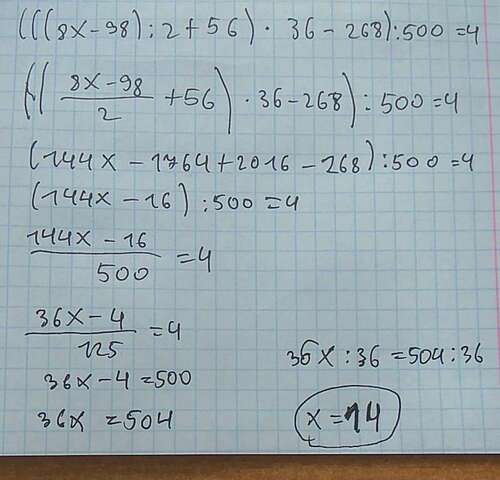 (((8x-98):2+56)·36-268):500=4
((\frac{8x-98}{2}+56)·36-268):500=4
(144x-1764+2016-268):500=4
(144x-16):500=4
\frac{144x-16}{500}=4
\frac{36x-4}{125}=4
36x-4=500
36x=504
36x:36=504:36
x=14